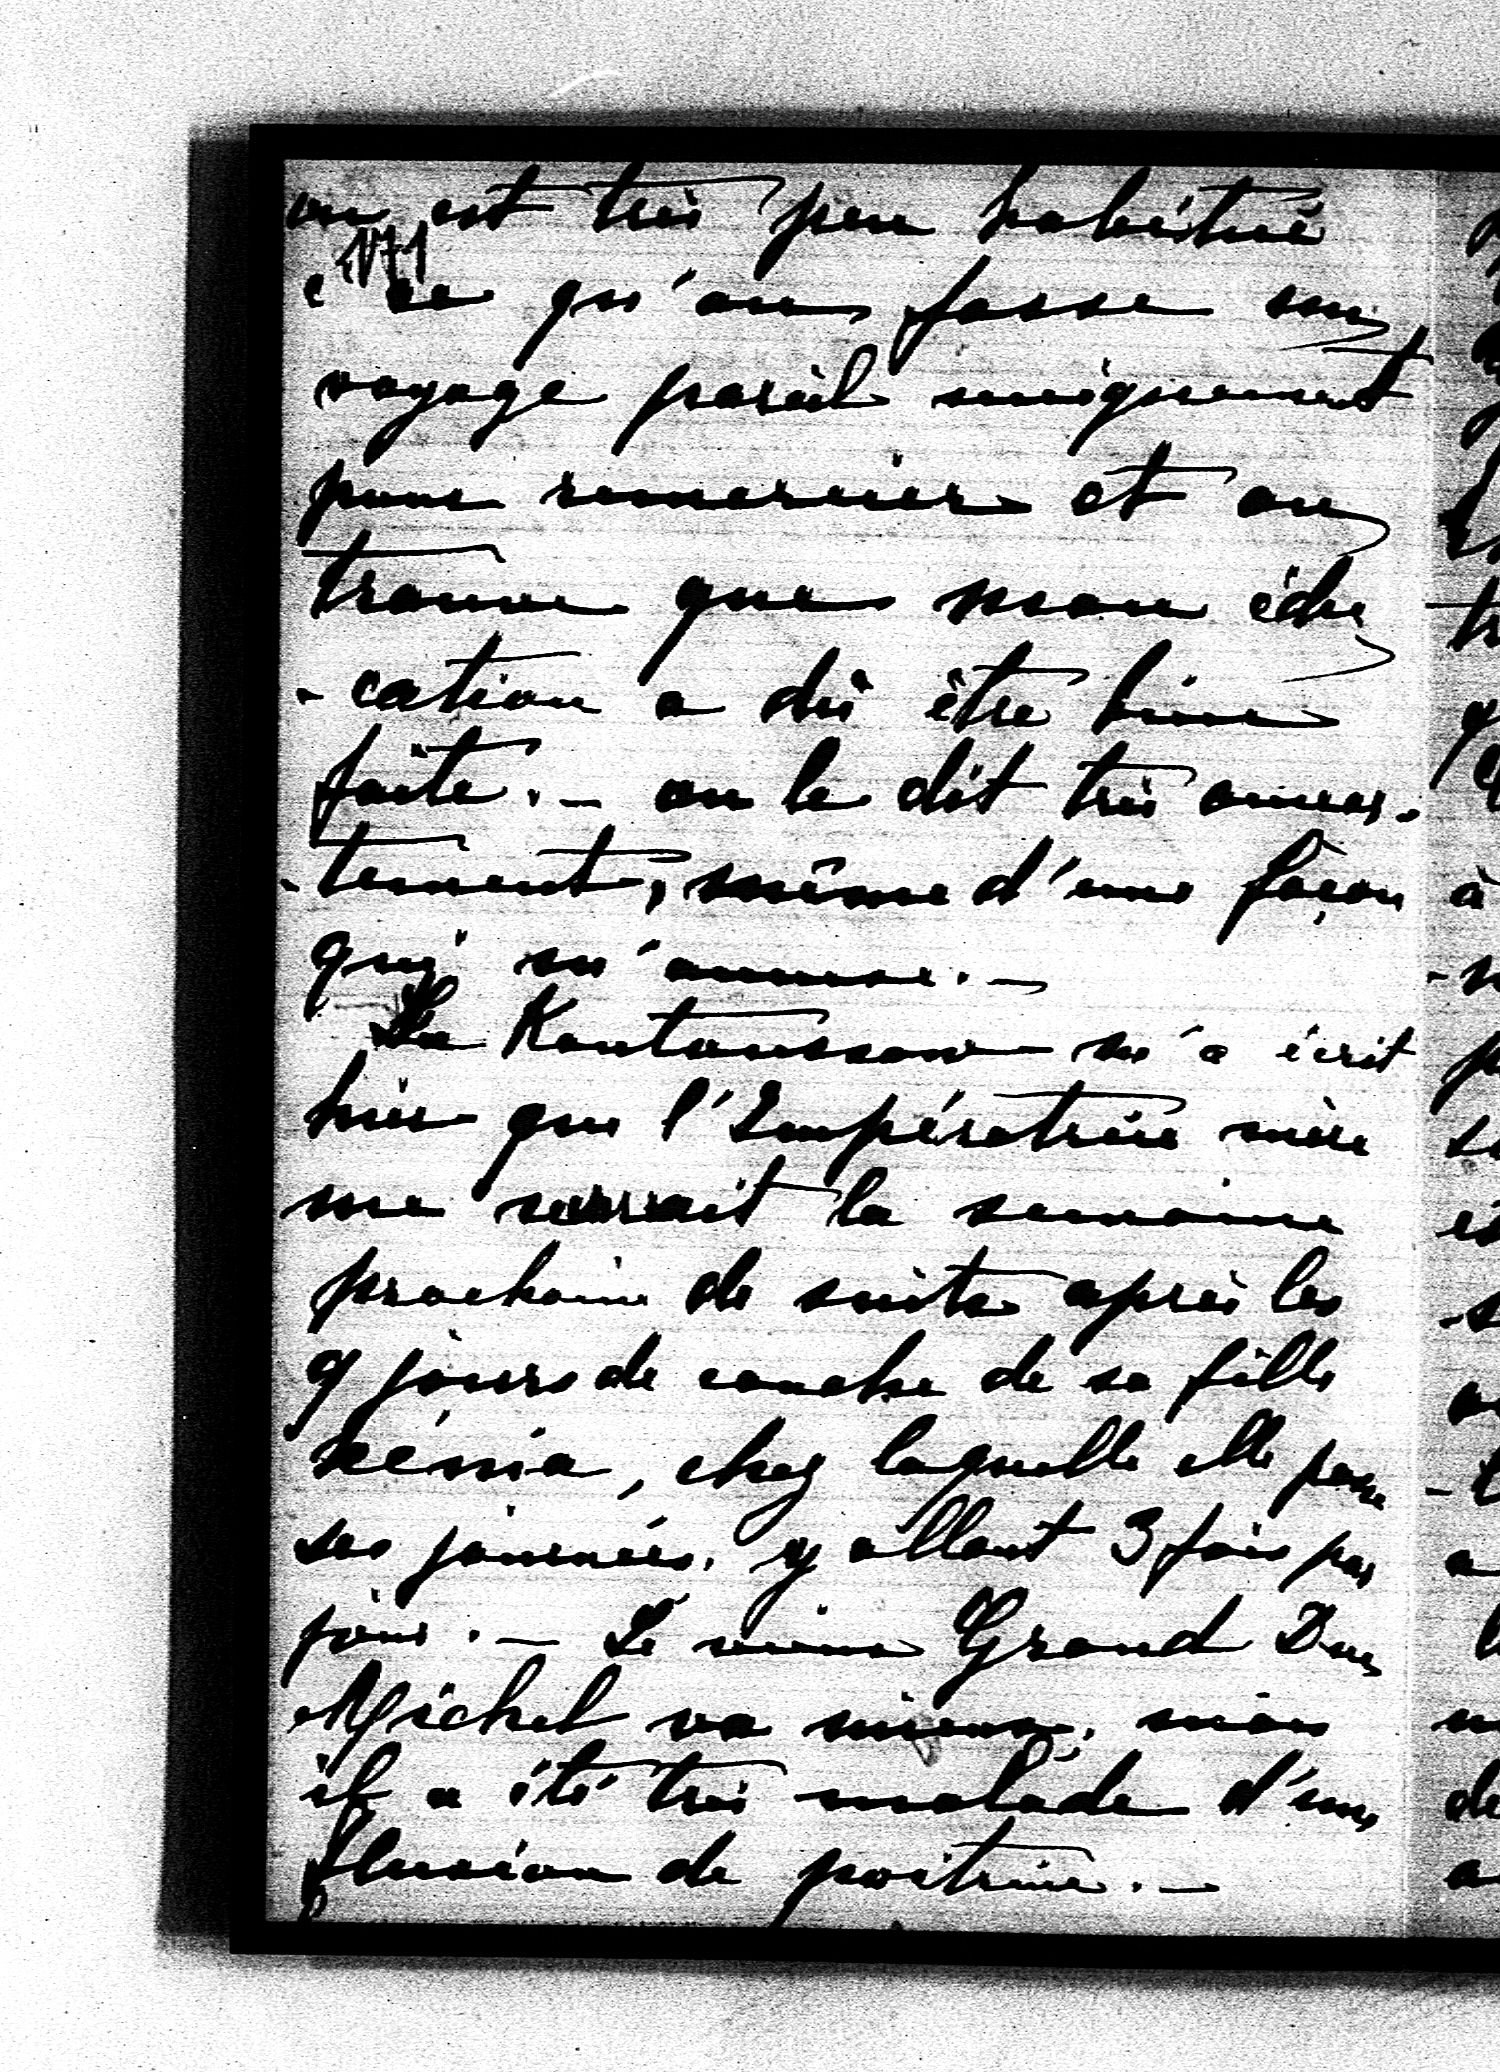 on est très peu habitué
171
à ce qu'on fasse un
voyage pareil uniquement
pour remercier et on
trouve que mon édu
-cation a dû être bien
faite. — on le dit très ouver-
-tement, même d'une façon
qui m'amuse. —
La Kontoussow m'a écrit
hier que l'Impératrice mère
me verrait la semaine
prochaine de suite après les
9 jours de couche de sa fille
Xénia, chez laquelle elle passe
ses journées, y allant 3 fois par
jour. — Le vieux Grand Duc
Michel va mieux, mais
il a été très malade d'une
fluxion de poitrine. —